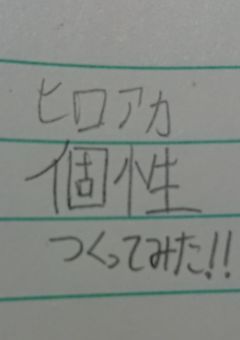 ヒロアカ
個性
つくってみた!!